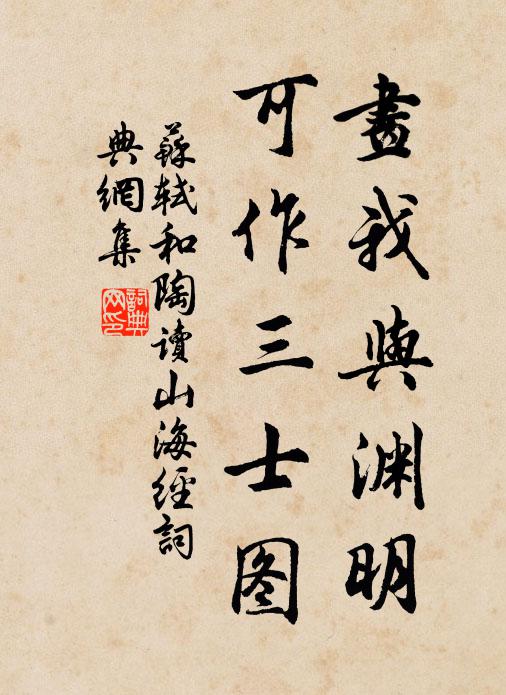 畫我與渊明
可作三士图
蘇軾和陶讀山海經詞
典網集
詞典
网印